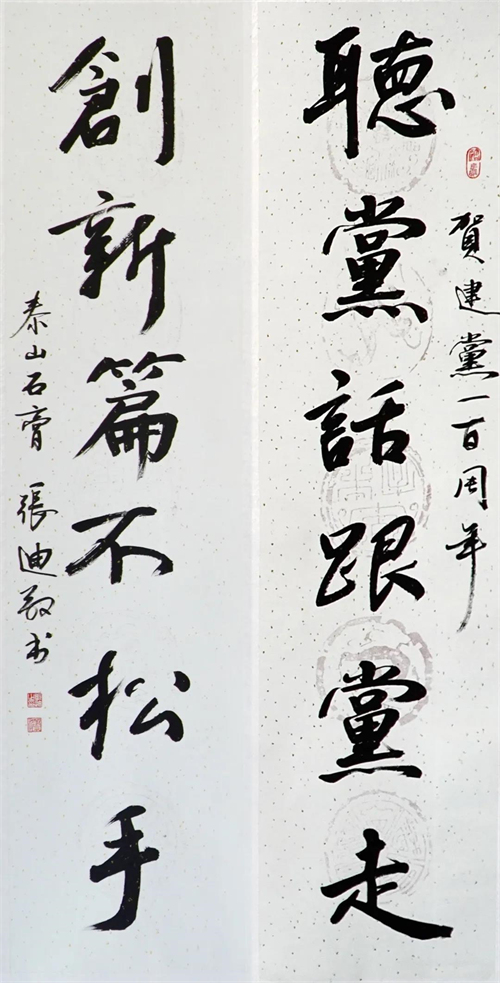 賀建黨一百周年
聽黨話跟黨走
創新篇不松手
泰山石膏 張迪敬书